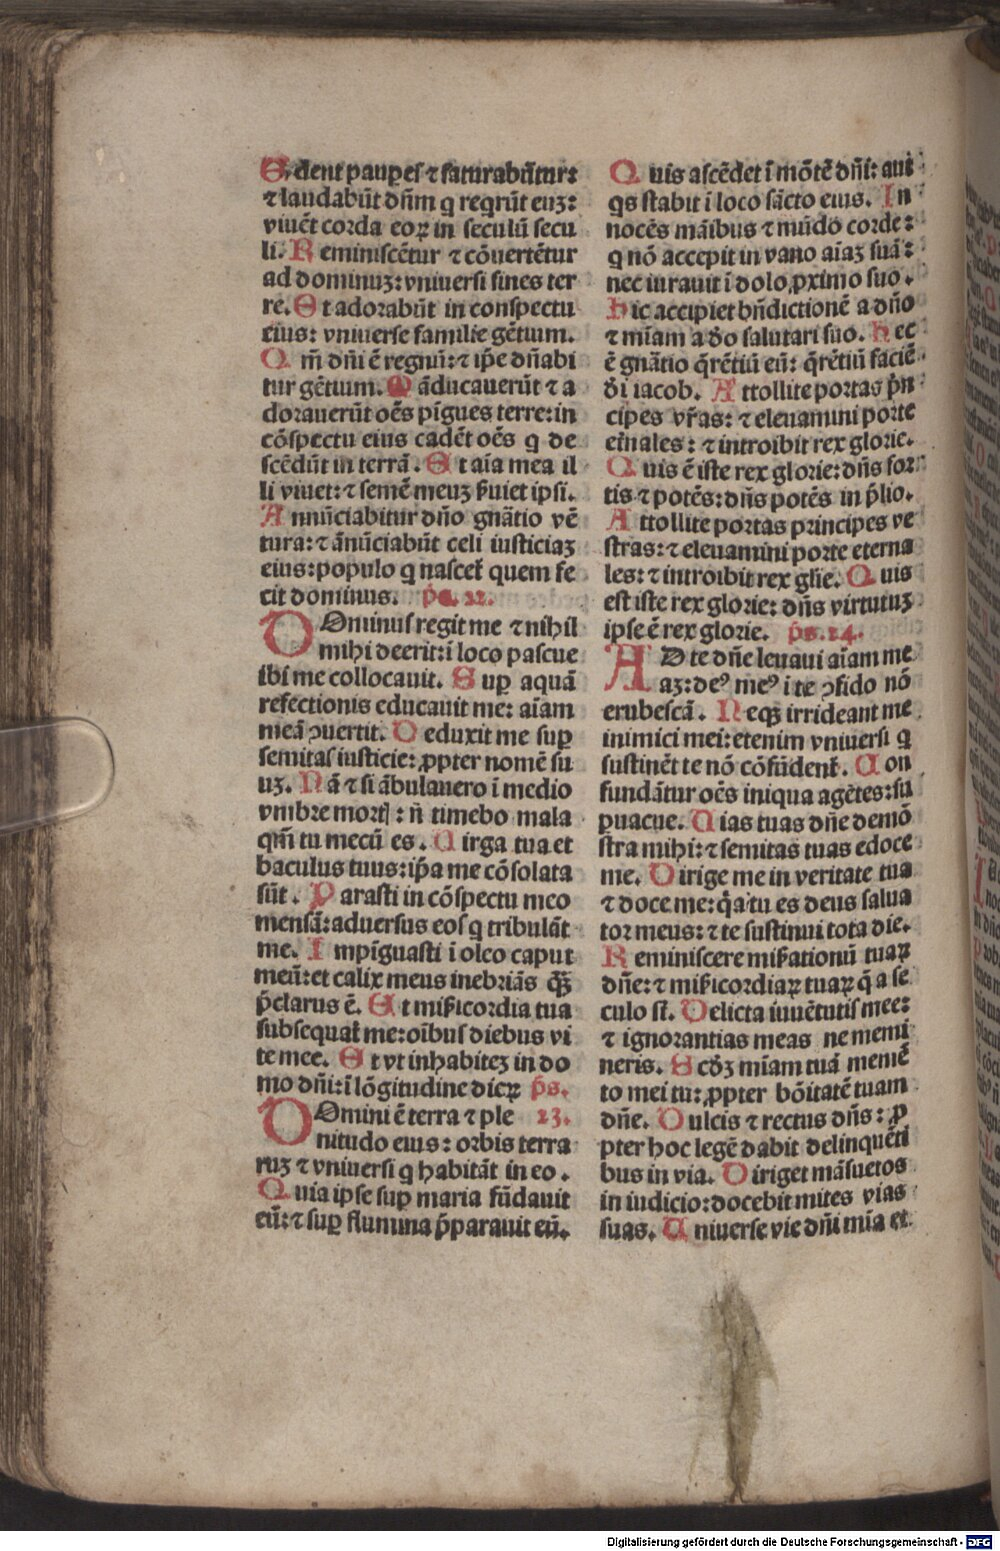 Edent paup̲es ⁊ saturabũtur:
⁊ laudabũt dñm q reqrũt euꝫ:
viuẽt corda eoꝝ in seculũ secu
li. Reminiscẽtur ⁊ cõuertẽtur
ad dominuꝫ: vniuersi fines ter
re. Et adorabũt in conspectu
eius: vniuerse familie gẽtium.
Qm̃ dñi ẽ regnuꝫ: ⁊ ip̃e dñabi
tur gẽtium. Mãducauerũt ⁊ a
dorauerũt oẽs pĩgues terre: in
cõspectu eius cadẽt oẽs q de
scẽdũt in terrã. Et aĩa mea il
li viuet: ⁊ semẽ meuꝫ s̃uiet ipsi.
Annũciabitur dño gnãtio vẽ
tura: ⁊ ãnũciabũt celi iusticiaꝫ
eius: populo q nascet̃ quem fe
cit dominus. p̃s. 22.
Dominus regit me ⁊ nihil
mihi deerit: i loco pascue
ibi me collocauit. Sup̲ aquã
refectionis educauit me: aĩam
meã ꝯuertit. Deduxit me sup̲
semitas iusticie: ꝓpter nomẽ su
uꝫ. Nã ⁊ si ãbulauero ĩ medio
vmbre mort̃: ñ timebo mala
qm̃ tu mecũ es. Uirga tua et
baculus tuus: ip̃a me cõsolata
sũt. Parasti in cõspectu meo
mensã: aduersus eos q tribulãt
me. Impĩguasti ĩ oleo caput
meũ: et calix meus inebriãs q̃ꝫ
p̃clarus ẽ. Et mis̃icordia tua
subsequat̃ me: oĩbus diebus vi
te mee. Et vt inhabiteꝫ in do
mo dñi: ĩ lõgitudinẽ dieꝝ p̃s.
Domini ẽ terra ⁊ ple 23.
nitudo eius: orbis terra
ruꝫ ⁊ vniuersi q habitãt in eo.
Quia ipse sup̲ maria fũdauit
eũ: ⁊ sup̲ flumina p̃parauit eũ.
Quis ascẽdet ĩ mõtẽ dñi: aut
q̃s stabit ĩ loco sãcto eius. In
nocẽs mãibus ⁊ mũdo corde:
q nõ accepit in vano aĩaꝫ suã:
nec iurauit ĩ dolo ꝓximo suo.
Hic accipiet bñdictionẽ a dño
⁊ mĩam a dõ salutari suo. Hec
ẽ gnãtio q̃rẽtiũ eũ: q̃rẽtiũ faciẽ
dĩ iacob. Attollite portas p̃n
cipes vr̃as: ⁊ eleuamini porte
et̃nales: ⁊ introibit rex glorie.
Quis ẽ iste rex glorie: dñs for
tis ⁊ potẽs: dñs potẽs in p̃lio.
Attollite portas principes ve
stras: ⁊ eleuamini porte eterna
les: ⁊ introibit rex gl̃ie. Quis
est iste rex glorie: dñs virtutuꝫ
ipse ẽ rex glorie. p̃s. 24.
AD te dñe leuaui aĩam me
aꝫ: deꝰ meꝰ i te ꝯfido nõ
erubescã. Neqꝫ irrideant me
inimici mei: etenim vniuersi q
sustinẽt te nõ cõfũdent̃. Con
fundãtur oẽs iniqua agẽtes: su
p̲uacue. Uias tuas dñe demõ
stra mihi: ⁊ semitas tuas edoce
me. Dirige me in veritate tua
⁊ doce me: q̃a tu es deus salua
tor meus: ⁊ te sustinui tota die.
Reminiscere mis̃ationũ tuaꝝ
dñe: ⁊ mis̃icordiaꝝ tuaꝝ q̃ a se
culo st̃. Delicta iuuẽtutis mee:
⁊ ignorantias meas ne memi
neris. Scd̃ꝫ mĩam tuã memẽ
to mei tu: ꝓpter bõitatẽ tuam
dñe. Dulcis ⁊ rectus dñs: ꝓ
pter hoc legẽ dabit delinquẽti
bus in via. Diriget mãsuetos
in iudicio: docebit mites vias
suas. Uniuerse vie dñi mĩa et
Digitalisierung gefördert durch die Deutsche Forschungsgemeinschaft - DFG